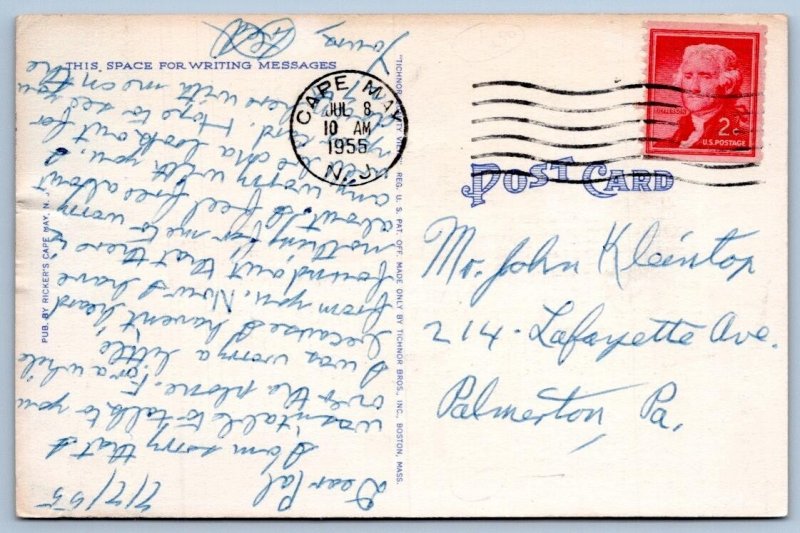 THIS SPACE FOR WRITING MESSAGES
7/7/55
Dear Pal
I am sorry that I
wasn't able to talk to you
over the phone. For a while
I was worry a little
because I haven't heard
from you. Now I have
found out that there is
nothing for me to worry
about. I feel free about
any worry with you.
look out for
Hope to see you
here with me on the
Yours,
Ted
PUB. BY RICKER'S CAPE MAY, N. J.
REG. U. S. PAT. OFF. MADE ONLY BY TICHNOR BROS., INC., BOSTON, MASS.
CAPE MAY
JUL 8
10 AM
1955
N.J.
2¢
U.S. POSTAGE
POST CARD
Mr. John Kleintop
214 - Lafayette Ave.
Palmerton, Pa.